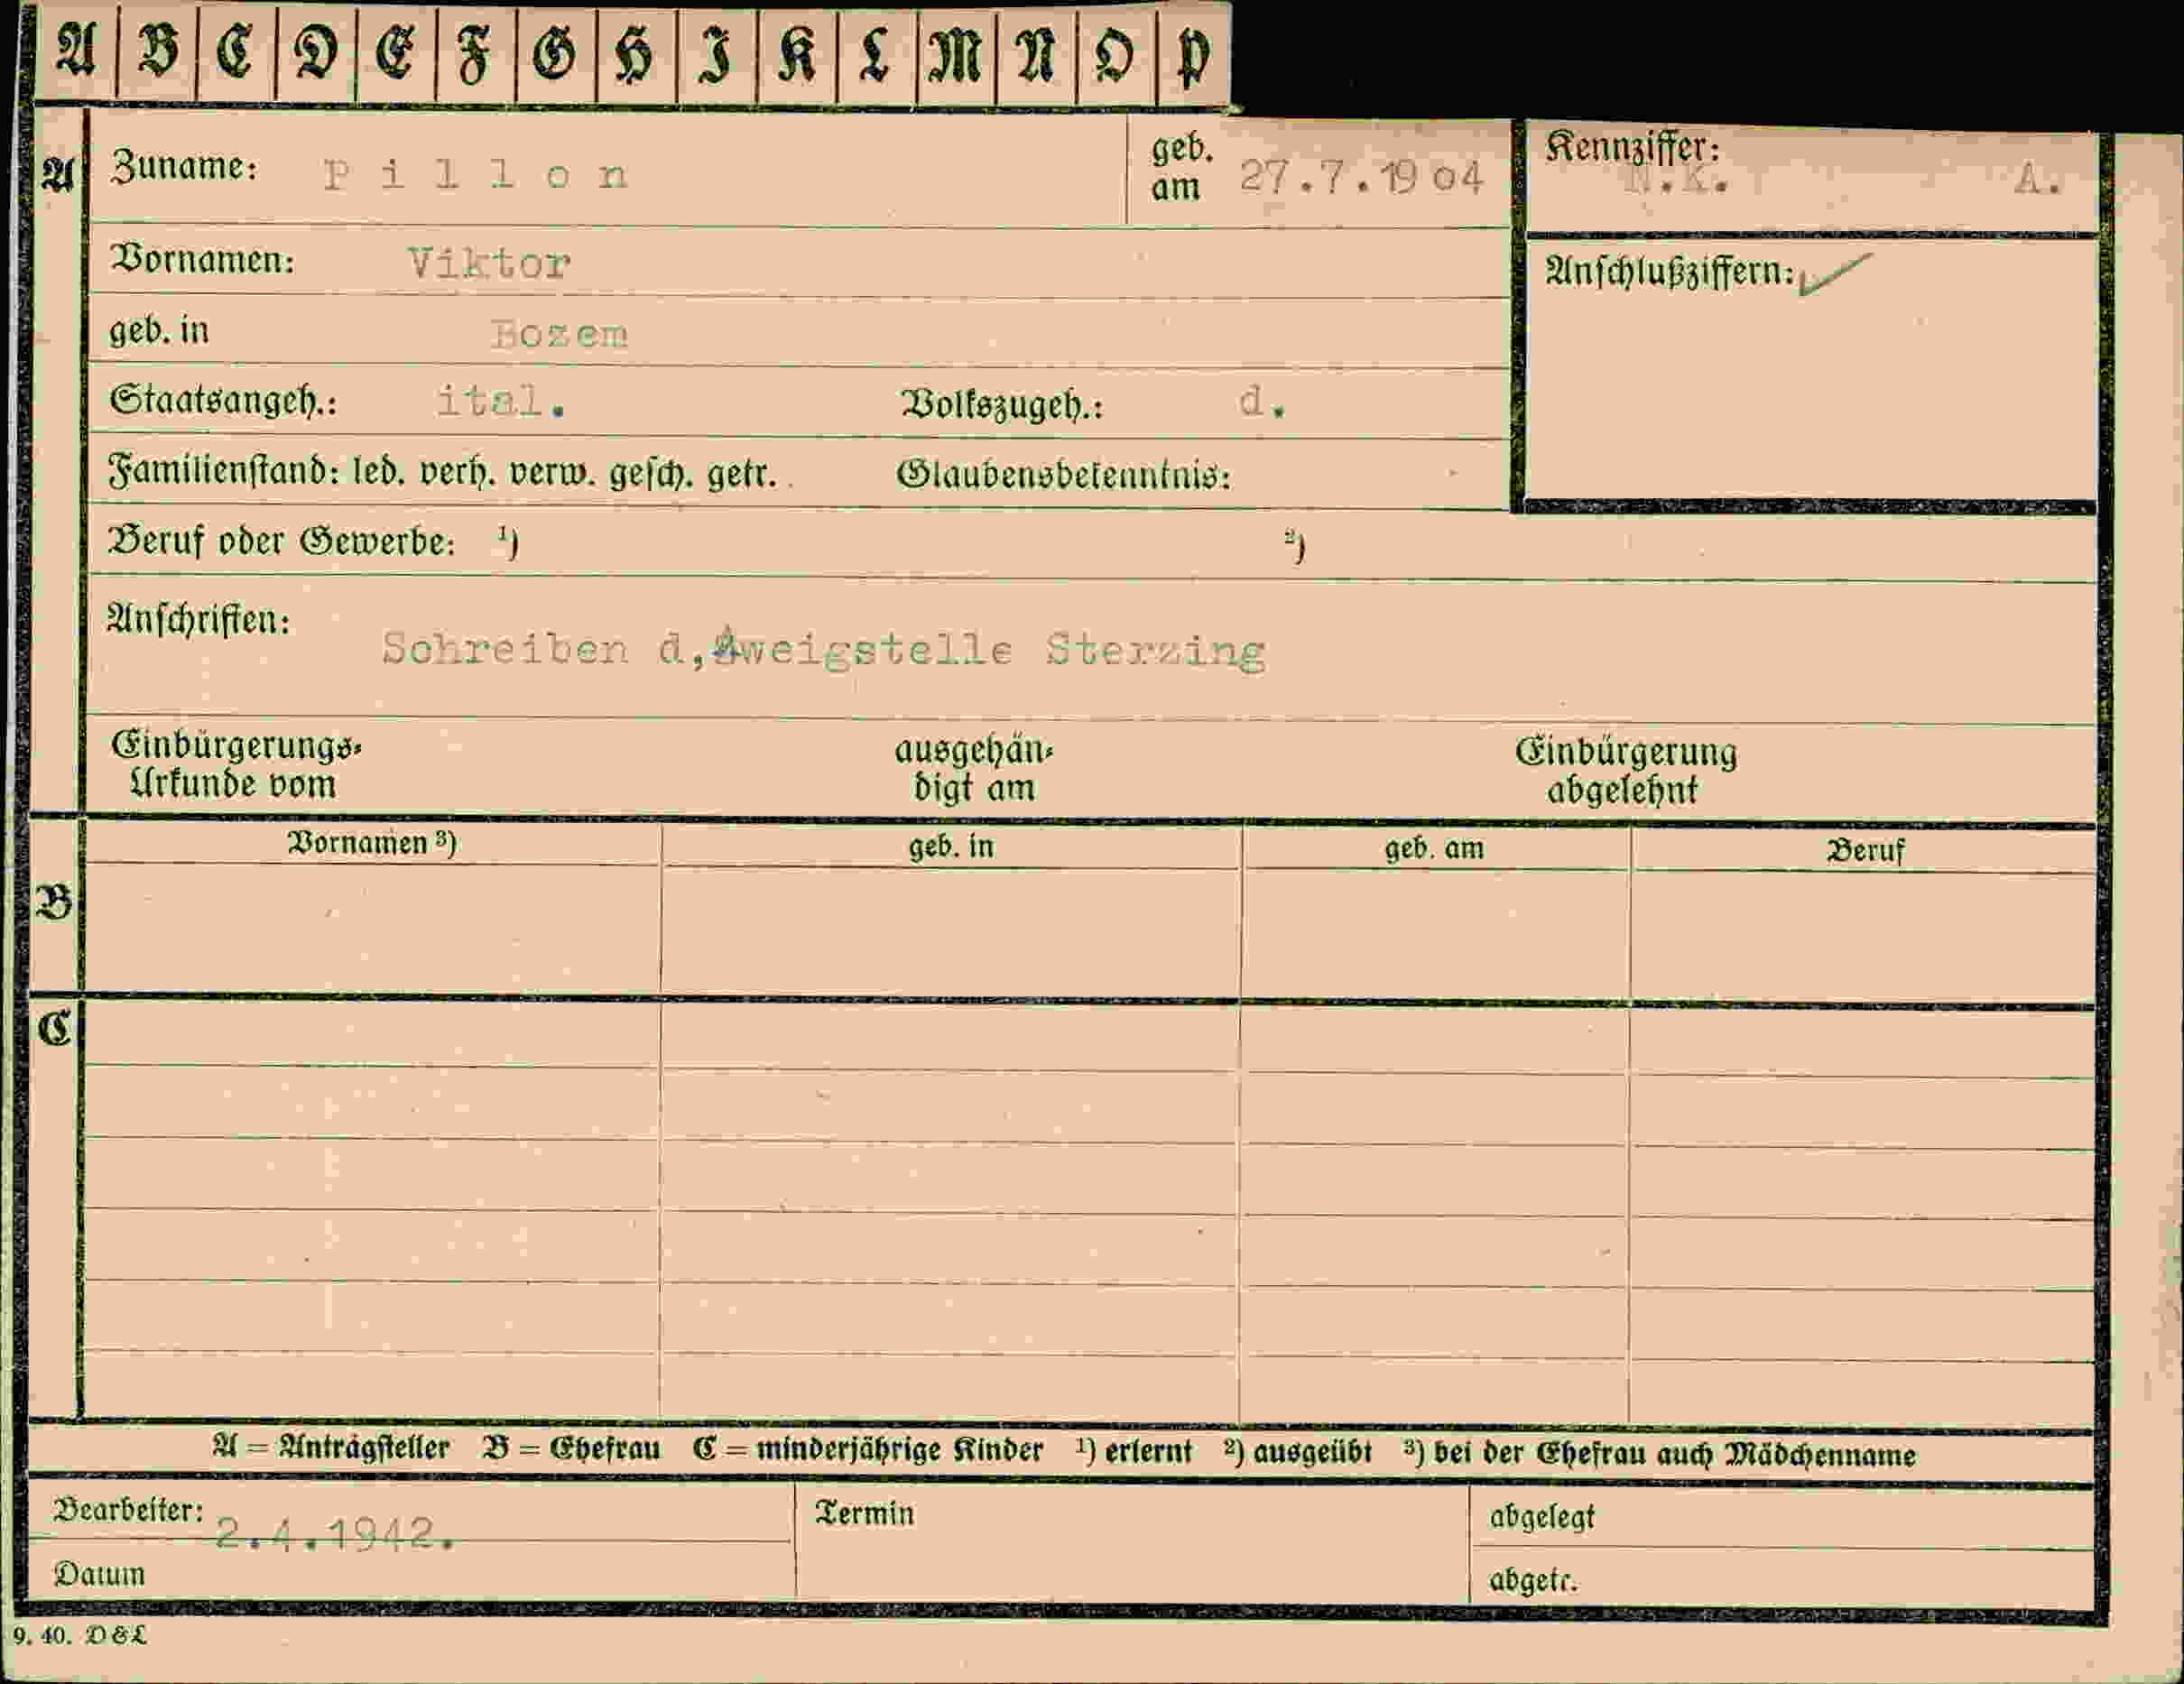 A B C D E F G H I K L M N O P
A Zuname: Pillon geb. am 27.7.1904 Kennziffer: N.K. A.
Vornamen: Viktor Anschlußziffern: ✓
geb. in Bozem
Staatsangeh.: ital. Volkszugeh.: d.
Familienstand: led. verh. verw. gesch. getr. Glaubensbekenntnis:
Beruf oder Gewerbe: ¹) ²)
Anschriften: Schreiben d,Zweigstelle Sterzing
Einbürgerungs- ausgehän- Einbürgerung
Urkunde vom digt am abgelehnt
Vornamen ³) geb. in geb. am Beruf
B
C
A = Antragsteller B = Ehefrau C = minderjährige Kinder ¹) erlernt ²) ausgeübt ³) bei der Ehefrau auch Mädchenname
Bearbeiter: 2.4.1942. Termin abgelegt
Datum abgetr.
9. 40. D & L